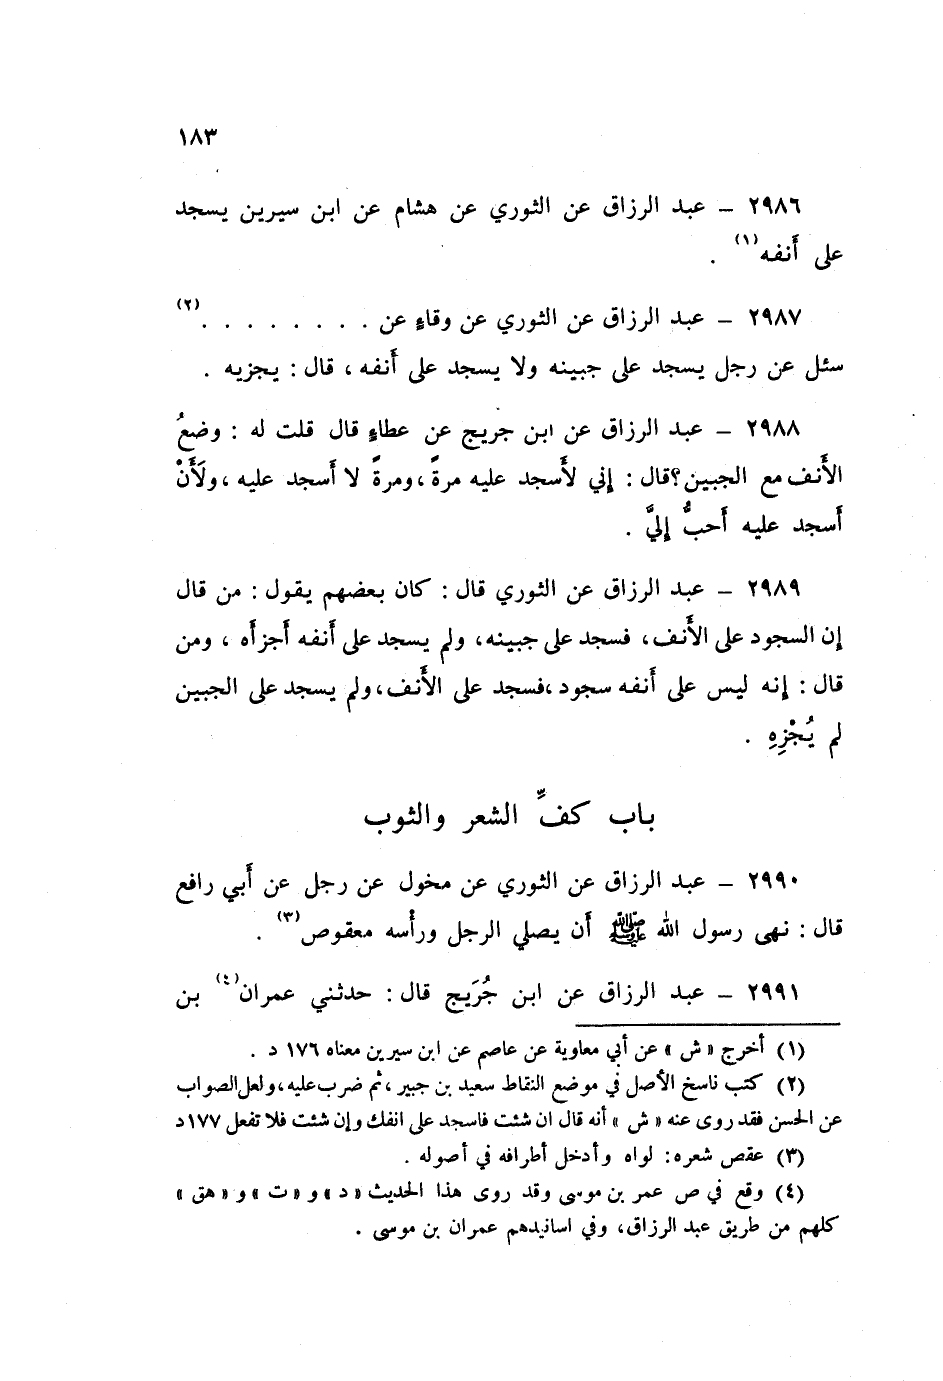 ١٨٣
٢٩٨٦ – عبد الرزاق عن الثوري عن هشام عن ابن سيرين يسجد
على أَنفه(١) .
٢٩٨٧ – عبد الرزاق عن الثوري عن وقاءٍ عن . . . . . . . .(٢)
سئل عن رجل يسجد على جبينه ولا يسجد على أَنفه ، قال : يجزيه .
٢٩٨٨ – عبد الرزاق عن ابن جريج عن عطاءٍ قال قلت له : وضعُ
الأَنف مع الجبين؟قال : إني لأَسجد عليه مرةً ،ومرةً لا أَسجد عليه ،ولَأَنْ
أَسجد عليه أَحبُّ إليَّ .
٢٩٨٩ – عبد الرزاق عن الثوري قال : كان بعضهم يقول : من قال
إن السجود على الأَنف، فسجد على جبينه، ولم يسجد على أَنفه أَجزأَه ، ومن
قال : إنه ليس على أَنفه سجود ،فسجد على الأَنف،ولم يسجد على الجبين
لم يُجْزِهِ .
باب كفِّ الشعر والثوب
٢٩٩٠ – عبد الرزاق عن الثوري عن مخول عن رجل عن أَبي رافع
قال : نهى رسول الله ﷺ أَن يصلي الرجل ورأْسه معقوص(٣) .
٢٩٩١ – عبد الرزاق عن ابن جُرَيج قال : حدثني عمران(٤) بن
(١) أخرج « ش » عن أبي معاوية عن عاصم عن ابن سيرين معناه ١٧٦ د .
(٢) كتب ناسخ الأصل في موضع النقاط سعيد بن جبير ،ثم ضرب عليه،ولعل الصواب
عن الحسن فقد روى عنه « ش » أنه قال ان شئت فاسجد على انفك وإن شئت فلا تفعل ١٧٧ د
(٣) عقص شعره: لواه وأدخل أطرافه في أصوله .
(٤) وقع في ص عمر بن موسى وقد روى هذا الحديث « د » و « ت » و « هق »
كلهم من طريق عبد الرزاق، وفي اسانيدهم عمران بن موسى .